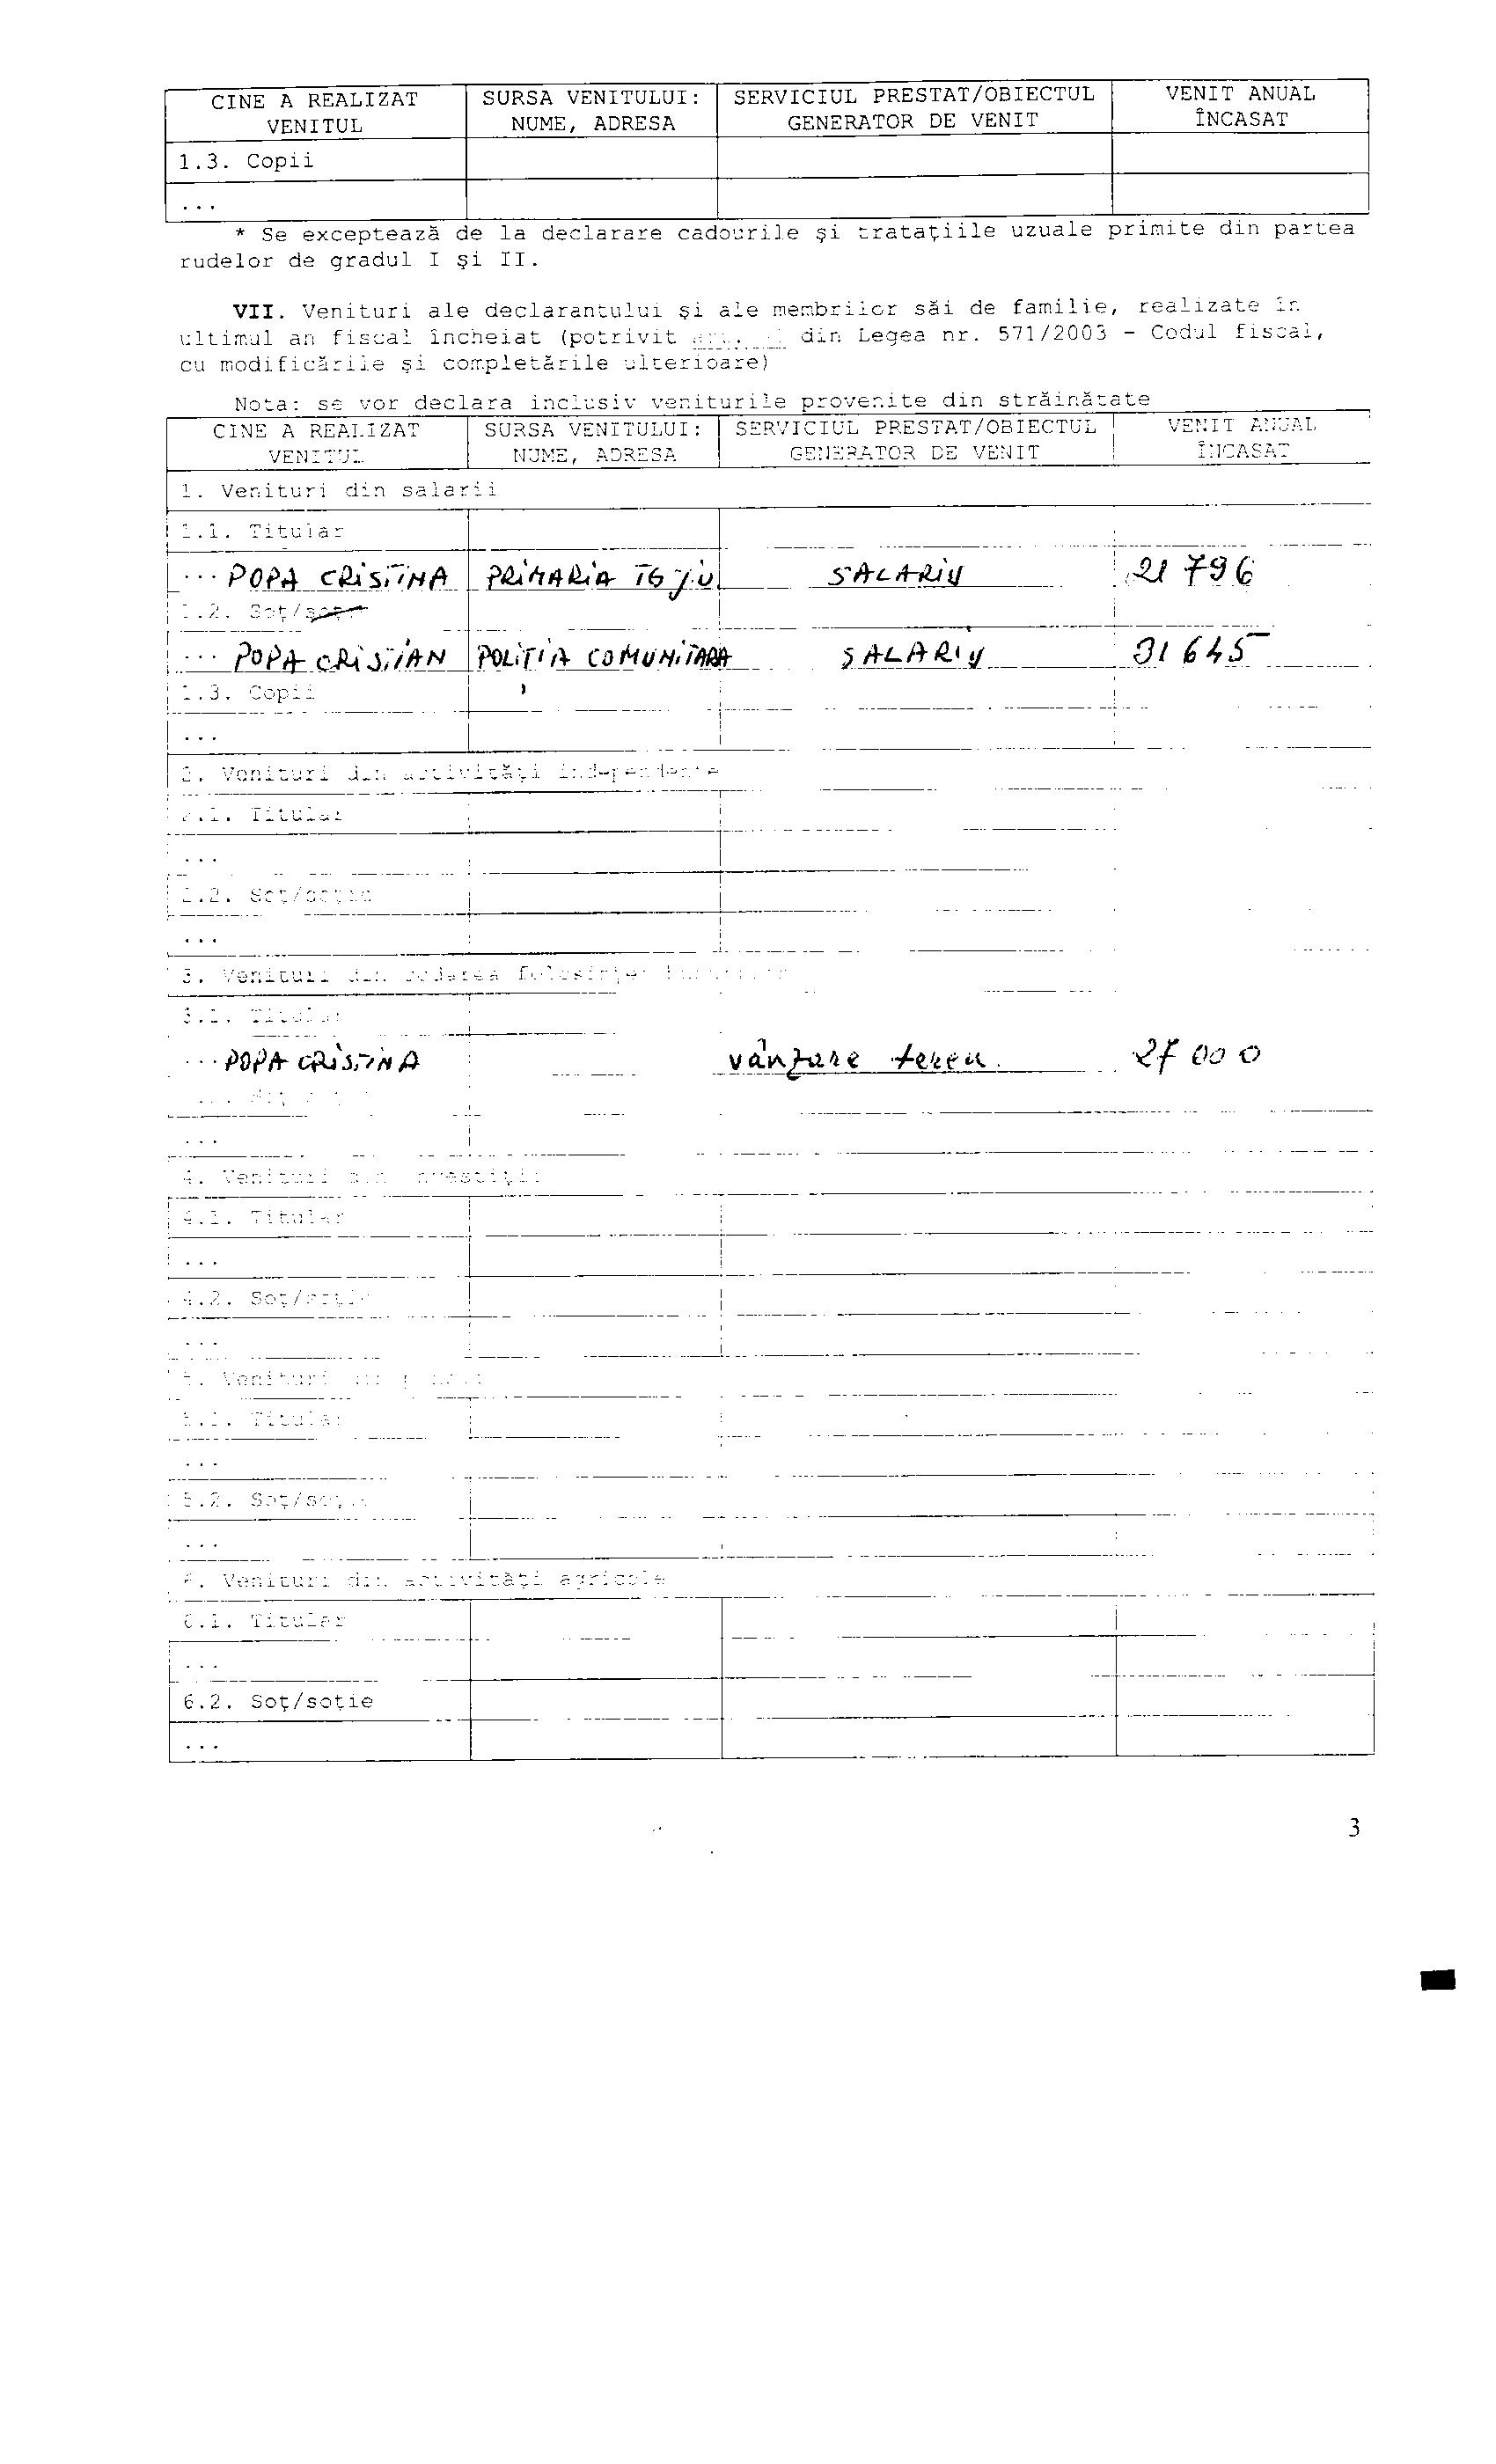 CINE A REALIZAT VENITUL | SURSA VENITULUI: NUME, ADRESA | SERVICIUL PRESTAT/OBIECTUL GENERATOR DE VENIT | VENIT ANUAL ÎNCASAT
1.3. Copii
...
* Se exceptează de la declarare cadourile şi trataţiile uzuale primite din partea
rudelor de gradul I şi II.
VII. Venituri ale declarantului şi ale membrilor săi de familie, realizate în
ultimul an fiscal încheiat (potrivit din Legea nr. 571/2003 - Codul fiscal,
cu modificările şi completările ulterioare)
Nota: se vor declara inclusiv veniturile provenite din străinătate
CINE A REALIZAT VENITUL | SURSA VENITULUI: NUME, ADRESA | SERVICIUL PRESTAT/OBIECTUL GENERATOR DE VENIT | VENIT ANUAL ÎNCASAT
1. Venituri din salarii
1.1. Titular
... POPA CRISTINA | PRIMARIA TG JIU | SALARIU | 21 796
1.2. Soţ/soţie
... POPA CRISTIAN | POLIŢIA COMUNITARA | SALARIU | 31 645
1.3. Copii
...
2. Venituri din activităţi independente
2.1. Titular
...
2.2. Soţ/soţie
...
3. Venituri din cedarea folosinţei
3.1. Titular
... POPA CRISTINA | vânzare teren. | 27 000
...
4. Venituri din investiţii
4.1. Titular
...
4.2. Soţ/soţie
...
5. Venituri din
5.1. Titular
...
5.2. Soţ/soţie
...
6. Venituri din activităţi agricole
6.1. Titular
...
6.2. Soţ/soţie
...
3